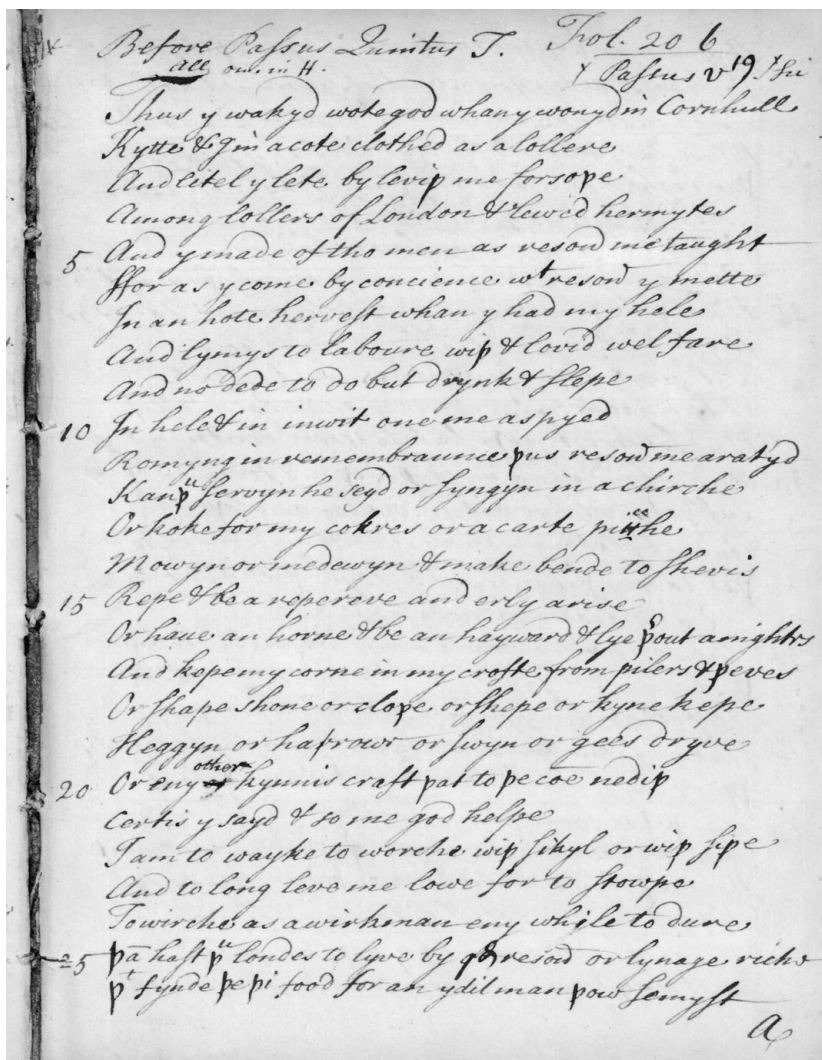 Before Passus Quintus T. Fol. 20 b
all om. in H. Passus v
Thus y wakyd wote god whan y wonyd in Cornhull
Kytte & J in a cote clothed as a lollere
And litel y lete by leviþ me forsoþe
Among lollers of London & lewid hermytes
5 And y made of tho men as resoun me taught
ffor as y come by concience wt resoun y mette
In an hote hervest whan y had my hele
And lymys to laboure wiþ & lovid wel fare
And no dede to do but drynk & slepe
10 In hele & in inwit one me aspyed
Romyng in remembraunce þus resoun me aratyd
Kan þu servyn he seyd or syngyn in a chirche
Or koke for my cokres or a carte picche
Mowyn or medewyn & make bende to shevis
15 Repe & be a repereve and erly arise
Or haue an horne & be an hayward & lye þout a nightrs
And kepe my corne in my crofte from pilers & þeves
Or shape shone or cloþe or shepe or kyne kepe
Heggyn or harrowe or swyn or gees dryve
20 Or eny other kynnis craft þat to þe coe nediþ
Certis y sayd & so me god helpe
I am to wayke to worche wiþ sikyl or wiþ siþe
And to long leve me lowe for to stowpe
To wirche as a wirkman eny while to dure
25 þā hast þu londes to lyve by qd resoun or lynage riche
þt fynde þe þi food for an ydil man þow semyst
a